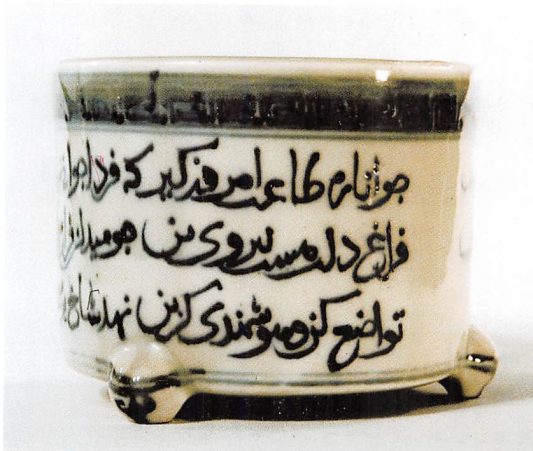 جوانا ره طاعت امروز گیر که فردا
فراغ دلت هست نیروی تن چو میدان
تواضع کند هوشمندی گزین نهد شاخ